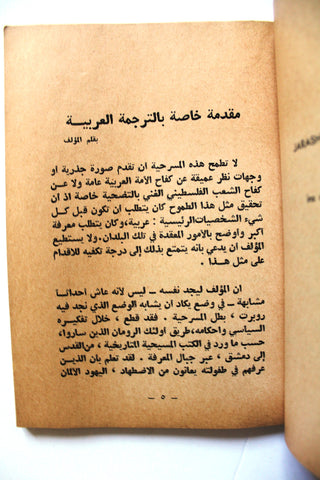 مقدمة خاصة بالترجمة العربية
بقلم المؤلف
لا تطمح هذه المسرحية ان تقدم صورة جذرية او
وجهات نظر عميقة عن كفاح الامة العربية عامة ولا عن
كفاح الشعب الفلسطيني الغني بالتضحية خاصة اذ ان
تحقيق مثل هذا الطموح كان يتطلب ان تكون قبل كل
شيء الشخصيات الرئيسية : عربية، وكان يتطلب معرفة
اكبر واوضح بالامور المعقدة في تلك البلدان. ولا يستطيع
المؤلف ان يدعي بانه يتمتع بذلك إلى درجة تكفيه للاقدام
على مثل هذا .
ان المؤلف ليجد نفسه – ليس لأنه عاش أحداثا
مشابهة – في وضع يكاد ان يشابه الوضع الذي نجد فيه
روبرت ، بطل المسرحية . فقد قطع ، خلال تفكيره
السياسي واحكامه، طريق اولئك الرومان الذين ساروا،
حسب ما ورد في الكتب المسيحية التاريخية ، من القدس
إلى دمشق ، عبر جبال المعرفة . لقد تعلم بان الذين
عرفهم في طفولته يعانون من الاضطهاد ، اليهود الالمان
– ٥ –
JARASH